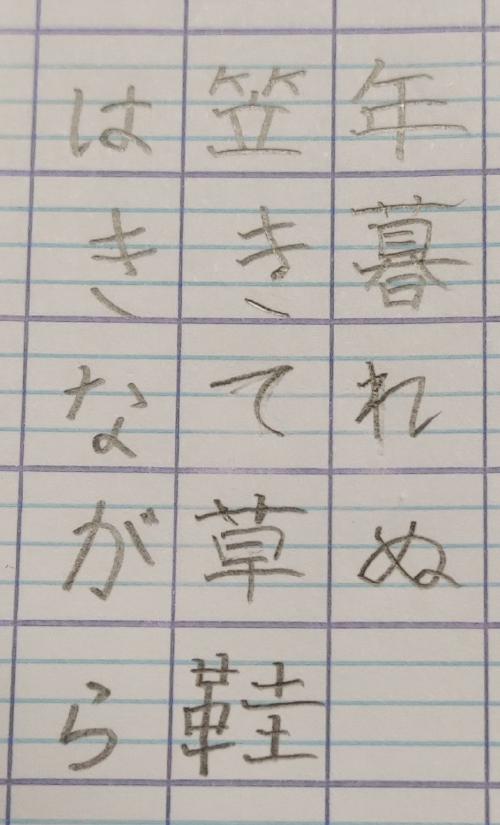 年暮れぬ
笠きて草鞋
はきながら